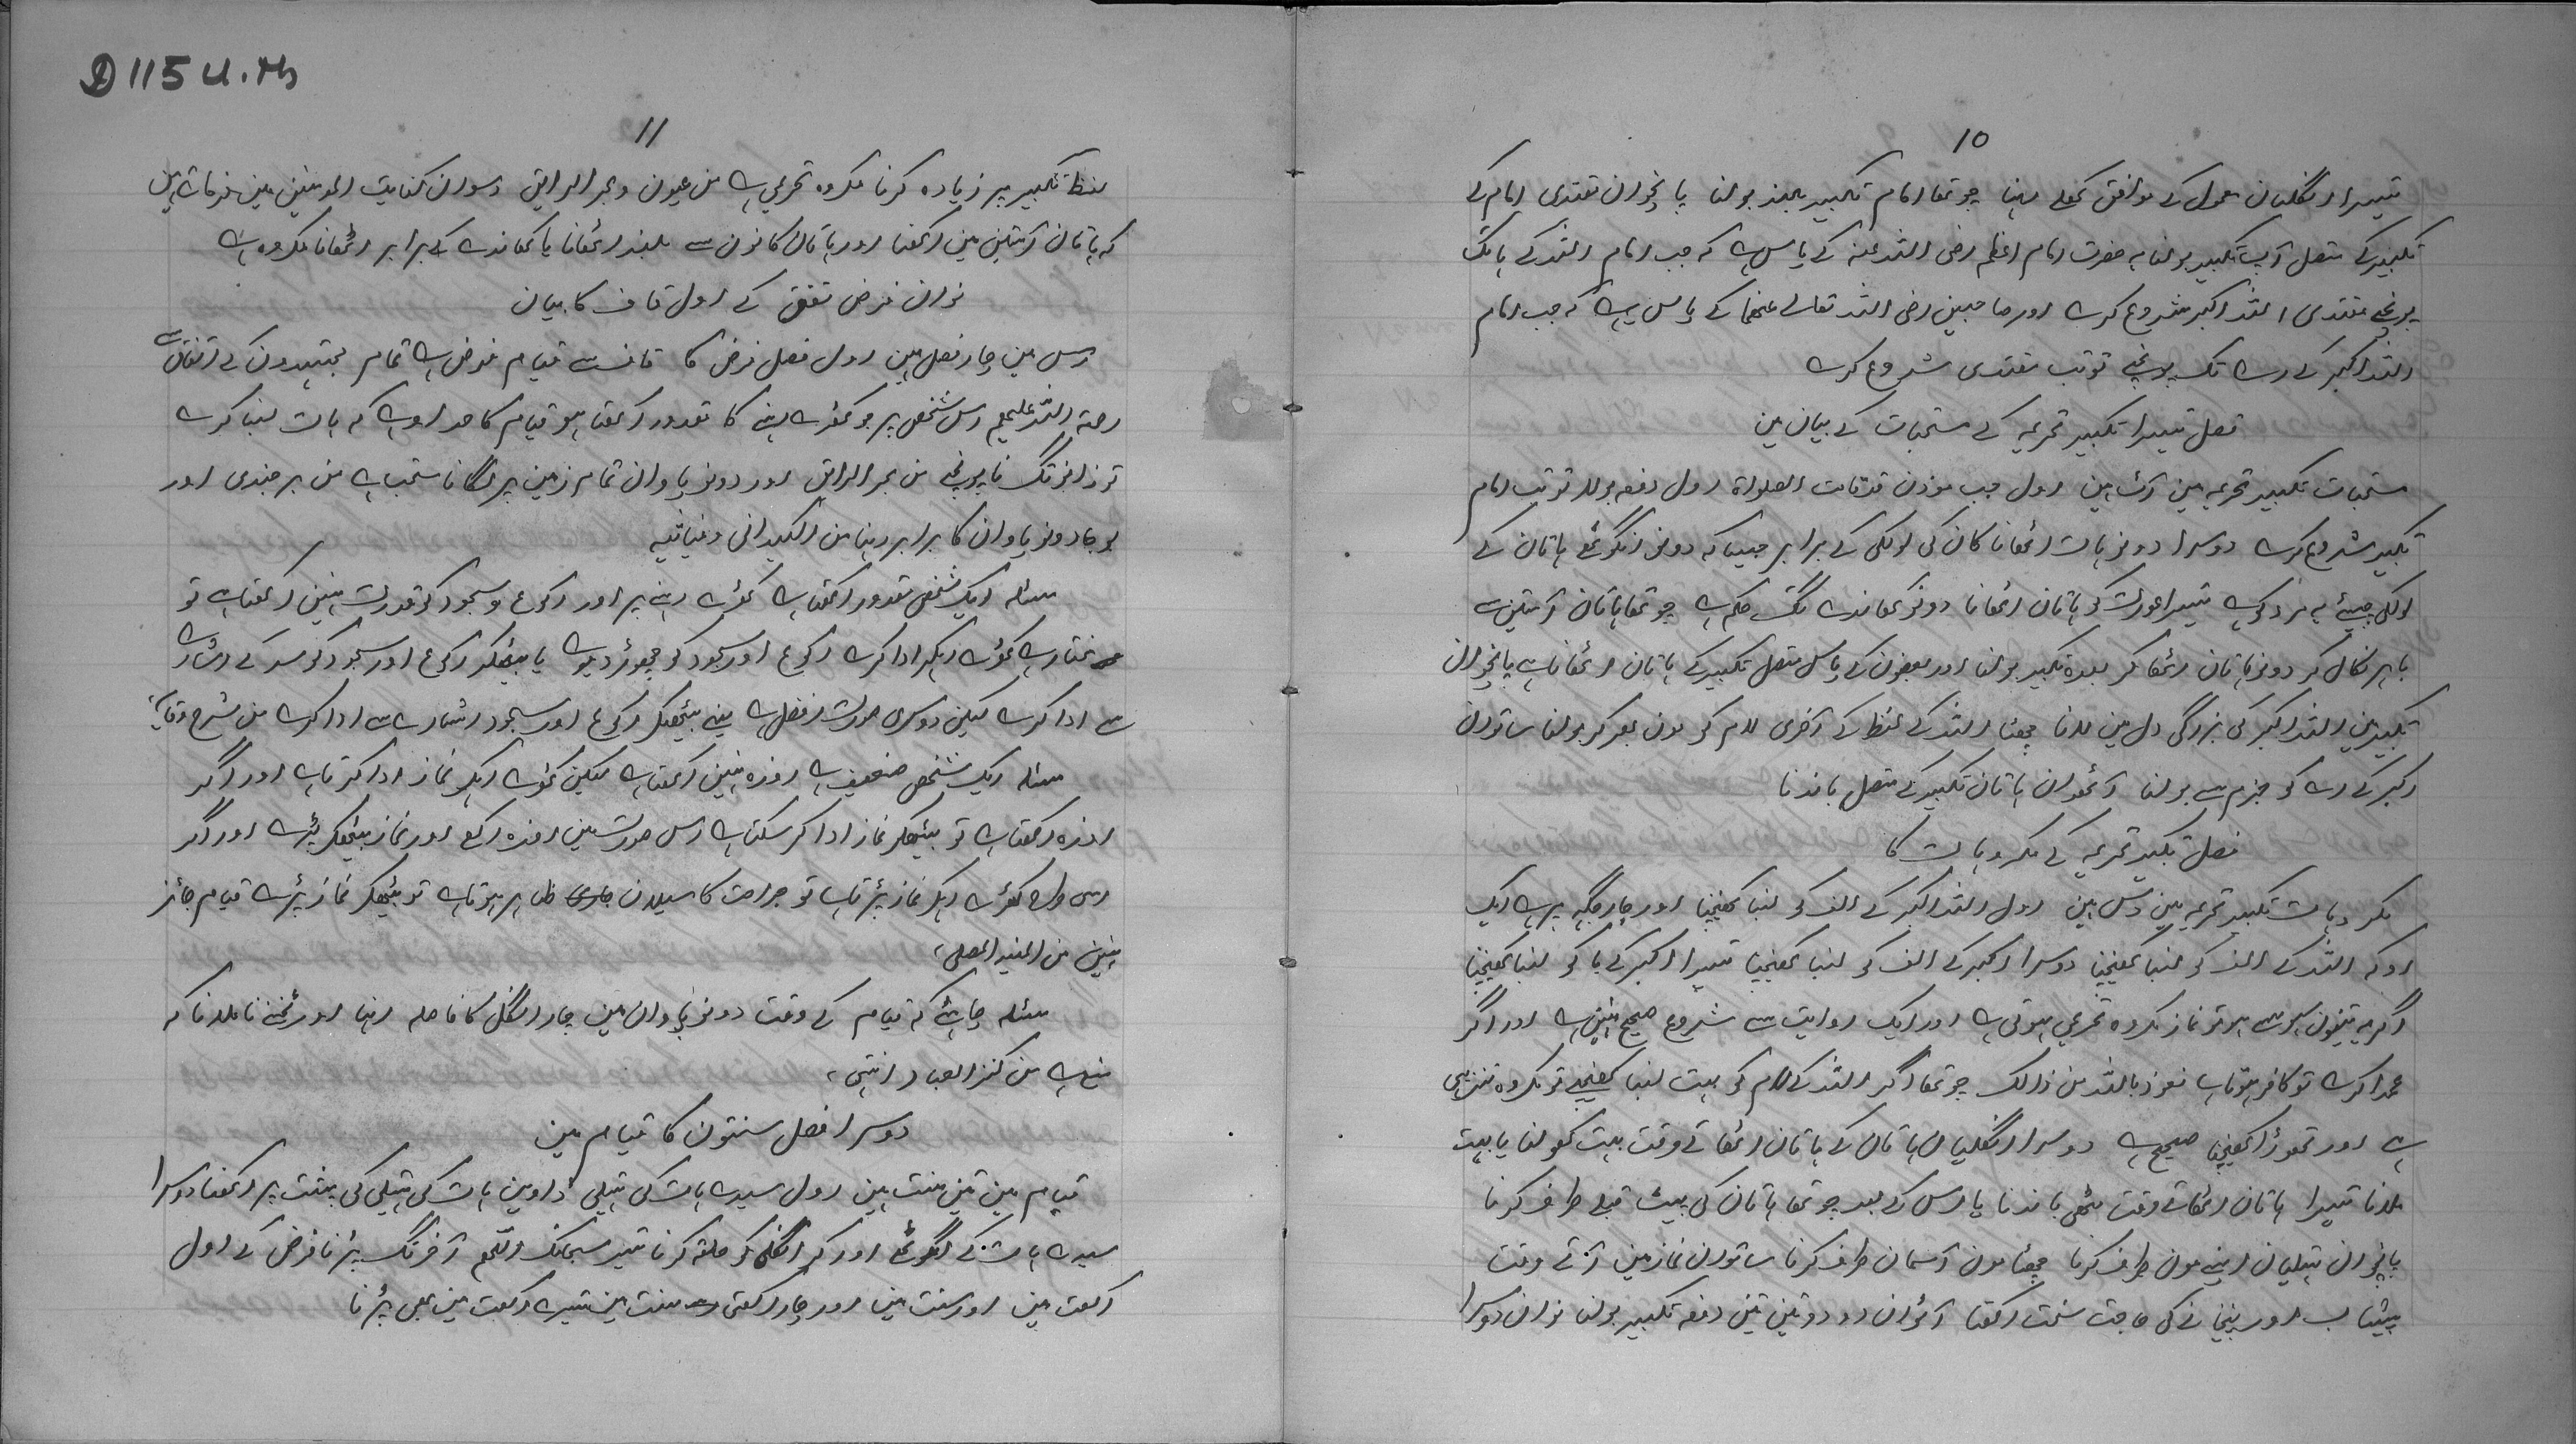 10
تیسرا انگلیان معمول کے موافق کھلے رہنا چوتھا امام تکبیر بلند بولنا پانچواں مقتدی امام کے
تکبیر کے متصل آہستہ تکبیر بولنا یہ حضرت امام اعظم رضی اللہ عنہ کے پاس ہے کہ جب امام اللہ کے ہا تگ
پونچے مقتدی اللہ اکبر شروع کرے اور صاحبین رضی اللہ تعالے عنہما کے پاس یہ ہے کہ جب امام
اللہ اکبر کے رے تک پونچے تو تب مقتدی شروع کرے
فصل تیسرا تکبیر تحریمہ کے مستحبات کے بیان مین
مستحبات تکبیر تحریمہ مین آٹ ہین اول جب موذن قدقامت الصلواۃ اول دفعہ بولا تو تب امام
تکبیر شروع کرے دوسرا دونو ہات اٹھانا کان کی لولکی کے برابر جیسا کہ دونو انگوٹھے ہاتان کے
لولکی چھیئے یہ مرد کو ہے تیسرا عورت کو ہاتان اٹھانا دونو کھاندے تگ حکم ہے چوتھا ہاتان آستین سے
باہر نکال کر دونو ہاتان اٹھا کر بعدہ تکبیر بولنا اور بعضون کے پاس متصل تکبیر کے ہاتان اٹھانا ہے پانچواں
تکبیر مین اللہ اکبر کی بزرگی دل مین لانا چھٹا اللہ کے لفظ کے آخری لام کو مون بھر کر بولنا ساتواں
اکبر کے رے کو جزم سے بولنا آٹھواں ہاتان تکبیر کے متصل باندنا
فصل تکبیر تحریمہ کے مکروہات کا
مکروہات تکبیر تحریمہ مین دس ہین اول اللہ اکبر کے الف کو لنبا کھینچنا اور چار جگہہ پر ہے ایک
او کہ اللہ کے الف کو لنبا کھینچنا دوسرا اکبر کے الف کو لنبا کھینچنا تیسرا اکبر کے با کو لنبا کھینچنا
اگر یہ تینون سہو سے ہو تو نماز مکروہ تحریمی ہوتی ہے اور ایک روایت سے شروع صحیح نہین ہے اور اگر
عمدا کرے تو کافر ہوتا ہے نعوذ باللہ من ذالک چوتھا اگر اللہ کے لام کو بہت لنبا کھینچے تو مکروہ تنزیہی
ہے اور تھوڑا کھینچنا صحیح ہے دوسرا انگلیاں ہاتاں کے ہاتان اٹھاتے وقت بہت کھولنا یا بہت
ملانا تیسرا ہاتان اٹھاتے وقت مٹھی باندنا یا اس کے بعد چوتھا ہاتان کی پیٹ قبلے طرف کرنا
پانچواں ہتیلیان اپنے مون طرف کرنا چھٹا مون آسمان طرف کرنا ساتواں نماز مین آتے وقت
پیشاب اور پنیخانے کی حاجت سخت رکھنا آٹواں دو دو تین تین دفعہ تکبیر بولنا نواں دوسرا
D 115 U. Th
11
لفظ تکبیر پر زیادہ کرنا مکروہ تحریمی ہے من عیون و بحر الرایق دسواں کفایت المومنین مین فرماتے ہین
کہ ہاتان آستین مین رکھنا اور ہاتاں کانون سے بلند اٹھانا یا کھاندے کے برابر اٹھانا مکروہ ہے
نواں فرض تفقق کے اول قاف کا بیان
اس مین چار فصل ہین اول فصل فرض کا قاف سے قیام فرض ہے تمام مجتہدون کے اتفاق سے
رحمۃ اللہ علیہم اس شخص پر جو کھڑے رہنے کا مقدور رکھتا ہو قیام کا حد او ہے کہ ہات لنبا کرے
تو زانو تگ نا پونچے من بحر الرایق اور دونو پاواں تمام زمین پر لگانا مستحب ہے من برجندی اور
بوجا دونو پاواں کا برابر رہنا من الکیدانی و غیاثیہ
مسئلہ ایک شخص مقدور رکھتا ہے کھڑے رہنے پر اور رکوع و سجود کو قدرت نہین رکھتا ہے تو
مختار ہے کھڑے رہکر ادا کرے رکوع اور سجود کو چھوڑ دیوے یا بیٹھکر رکوع اور سجود کو سر کے اشارے
سے ادا کرے لیکن دوسری صورت افضل ہے یعنے بیٹھکر رکوع اور سجود اشارے سے ادا کرے من شرح وقایہ
مسئلہ ایک شخص ضعیف ہے روزہ نہین رکھتا ہے لیکن کھڑے رہکر نماز ادا کرتا ہے اور اگر
روزہ رکھتا ہے تو بیٹھکر نماز ادا کر سکتا ہے اس صورت مین روزہ رکھے اور نماز بیٹھکر پڑے اور اگر
اس طرح کھڑے رہکر نماز پڑتا ہے تو جراحت کا سیلان جاری ظاہر ہوتا ہے تو بیٹھکر نماز پڑے قیام جائز
نہین من المنیہ المصلی
مسئلہ چاہئے کہ قیام کے وقت دونو پاواں مین چار انگل کا فاصلہ رہنا اور ٹخنے نا ملانا کہ
منع ہے من کنز العباد انتہی
دوسرا فصل سنتون کا قیام مین
قیام مین تین سنت ہین اول سیدے ہات کی ہتیلی داوین ہات کی ہتیلی کی پشت پر رکھنا دوسرا
سیدے ہات کے انگوٹھے اور کر انگلی کو حلقہ کرنا تیسرا سبحانک اللہم آخر تگ پڑنا فرض کے اول
رکعت مین اور سنت مین اور چار رکعتی سنت مین تیسرے رکعت مین بھی پڑنا